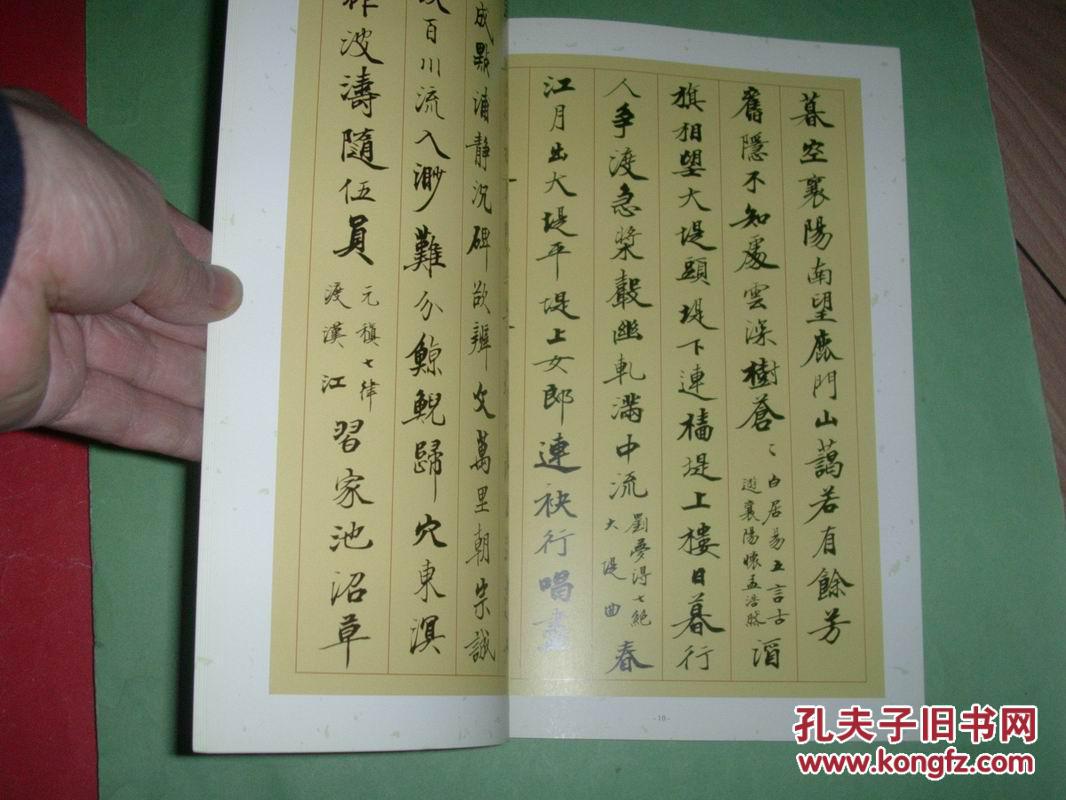 暮空襄陽南望鹿門山藹若有餘芳
舊隱不知處雲深樹蒼々
白居易五言古
遊襄陽懷孟浩然
酒
旗相望大堤頭堤下連檣堤上樓日暮行
人争渡急槳聲幽軋滿中流
劉夢得七絕
大堤曲
春
江月出大堤平堤上女郎連袂行唱盡
-10-
成點浦静沉碑欲辨文萬里朝宗誠
百川流入渺難分鯨鯢歸穴東溟
波濤隨伍員
元稹七律
渡漢江
習家池沼草
孔夫子旧书网
www.kongfz.com